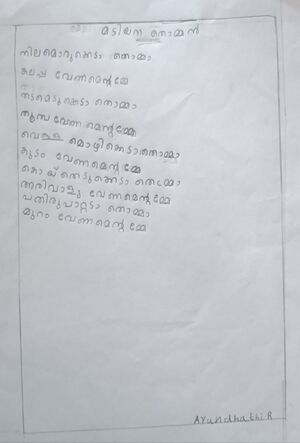 മടിയനാ തൊമ്മൻ
നിലമൊരുക്കെടാ തൊമ്മാ
കലപ്പ വേണമെന്റമ്മേ
തടമെടുക്കെടാ തൊമ്മാ
തൂമ്പ വേണമെന്റമ്മേ
വെള്ളമൊഴിക്കെടാ തൊമ്മാ
കുടം വേണമെന്റമ്മേ
കൊയ്തെടുക്കെടാ തൊമ്മാ
അരിവാളു വേണമെന്റമ്മേ
പതിരുപാറ്റടാ തൊമ്മാ
മുറം വേണമെന്റമ്മേ
Arundhathi R